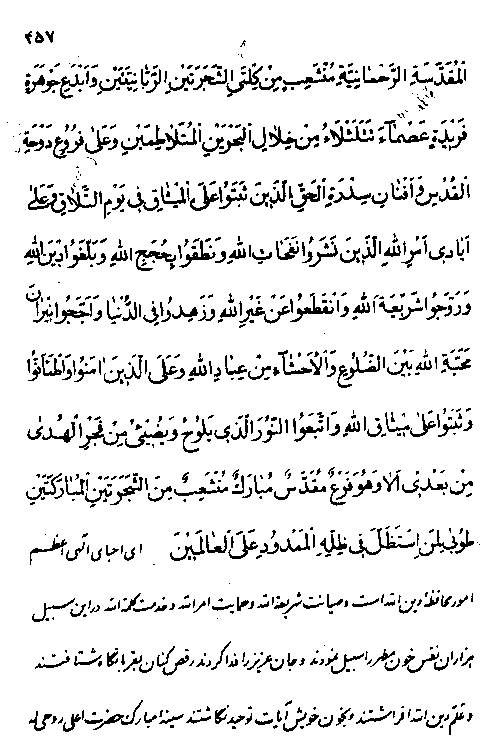 ۴۵۷
الْمُقَدَّسَةِ الرَّحْمَانِيَّةِ مُنْشَعِبٍ مِنْ كِلْتَي الشَّجَرَتَيْنِ الرَّبَّانِيَّتَيْنِ وَاَبْدَعِ جَوْهَرَةٍ
فَرِيْدَةٍ عَصْمَآءَ تَتَلَئْلَاُ مِنْ خِلَالِ الْبَحْرَيْنِ الْمُتَلَاطِمَيْنِ وَعَلٰى فُرُوْعِ دَوْحَةِ
الْقُدْسِ وَاَفْنَانِ سِدْرَةِ الْحَقِّ الَّذِيْنَ ثَبَتُوا عَلَى الْمِيْثَاقِ فِى يَوْمِ التَّلَاقِ وَعَلٰى
اَيَادِى اَمْرِ اللهِ الَّذِيْنَ نَشَرُوا نَفَحَاتِ اللهِ وَنَطَقُوا بِحُجَجِ اللهِ وَبَلَّغُوا دِيْنَ اللهِ
وَرَوَّجُوا شَرِيْعَةَ اللهِ وَانْقَطَعُوا عَنْ غَيْرِ اللهِ وَزَهِدُوا فِى الدُّنْيَا وَاَجَّجُوا نِيْرَانَ
مَحَبَّةِ اللهِ بَيْنَ الضُّلُوعِ وَالْاَحْشَآءِ مِنْ عِبَادِ اللهِ وَعَلَى الَّذِيْنَ اٰمَنُوا وَاطْمَاَنُّوا
وَثَبَتُوا عَلٰى مِيْثَاقِ اللهِ وَاتَّبَعُوا النُّوْرَ الَّذِى يَلُوْحُ وَيُضِيْئُ مِنْ فَجْرِ الْهُدٰى
مِنْ بَعْدِى اَلَا وَهُوَ فَرْعٌ مُقَدَّسٌ مُبَارَكٌ مُنْشَعِبٌ مِنَ الشَّجَرَتَيْنِ الْمُبَارَكَتَيْنِ
طُوْبٰى لِمَنْ اِسْتَظَلَّ فِى ظِلِّهِ الْمَمْدُوْدِ عَلَى الْعَالَمِيْنَ ای احبای الهی اعظم
امور محافظهٔ دین الله است و صیانت شریعة الله و حمایت امر الله و خدمت کلمة الله در این سبیل
هزاران نفس خون مطهر را سبیل نمودند و جان عزیز را فدا کردند رقص کنان بقربانگاه شتافتند
و علم دین الله افراشتند و بخون خویش آیات توحید نگاشتند سینهٔ مبارک حضرت اعلی روحی له